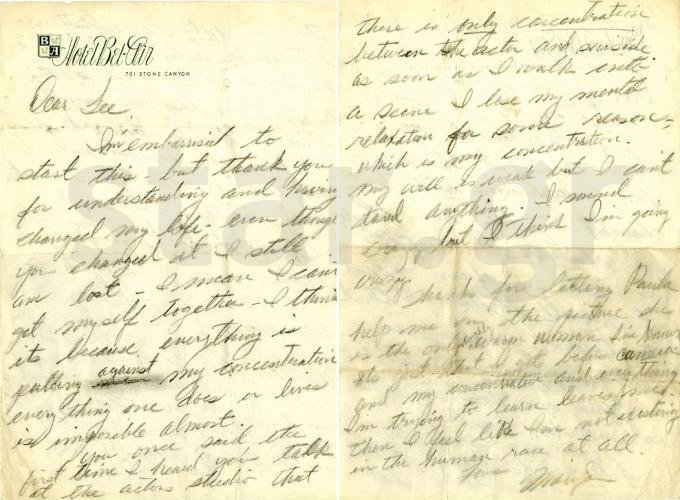 BA Hotel Bel-Air
701 STONE CANYON
Dear Lee,
I'm embarrised to
start this - but thank you
for understanding and having
changed my life - even though
you changed it I still
am lost - I mean I can't
get myself together - I think
its because everything is
pulling against my concentration
everything one does or lives
is imposible almost.
You once said the
first time I heard you talk
at the actors studio that
there is only concentration
between the actor and suicide.
as soon as I walk into
a scene I lose my mental
relaxation for some reason,
which is my concentration.
my will is weak but I can't
stand anything. I sound
crazy but I think I'm going
crazy.
Thanks for letting Paula
help me on the picture she
is the only warm woman I've known
It's just that I get before camera
and my concentration and everything
I'm trying to learn leaves me.
then I feel like I'm not existing
in the human race at all.
Love
Marilyn
star.gr